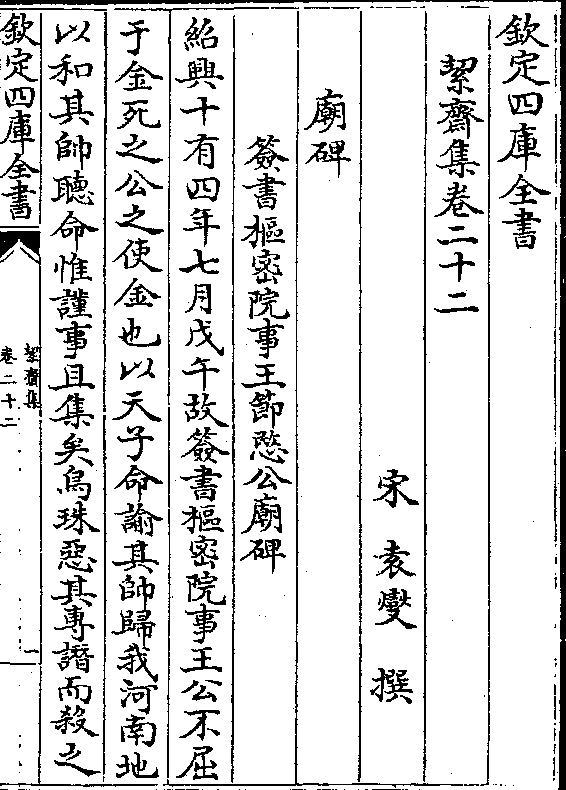 欽定四庫全書
絜齋集卷二十二
宋 袁燮 撰
廟碑
簽書樞密院事王節愍公廟碑
紹興十有四年七月戊午故簽書樞密院事王公不屈
于金死之公之使金也以天子命諭其帥歸我河南地
以和其帥聽命惟謹事且集矣烏珠惡其専譖而殺之
欽定四庫全書
絜齋集
卷二十二
一